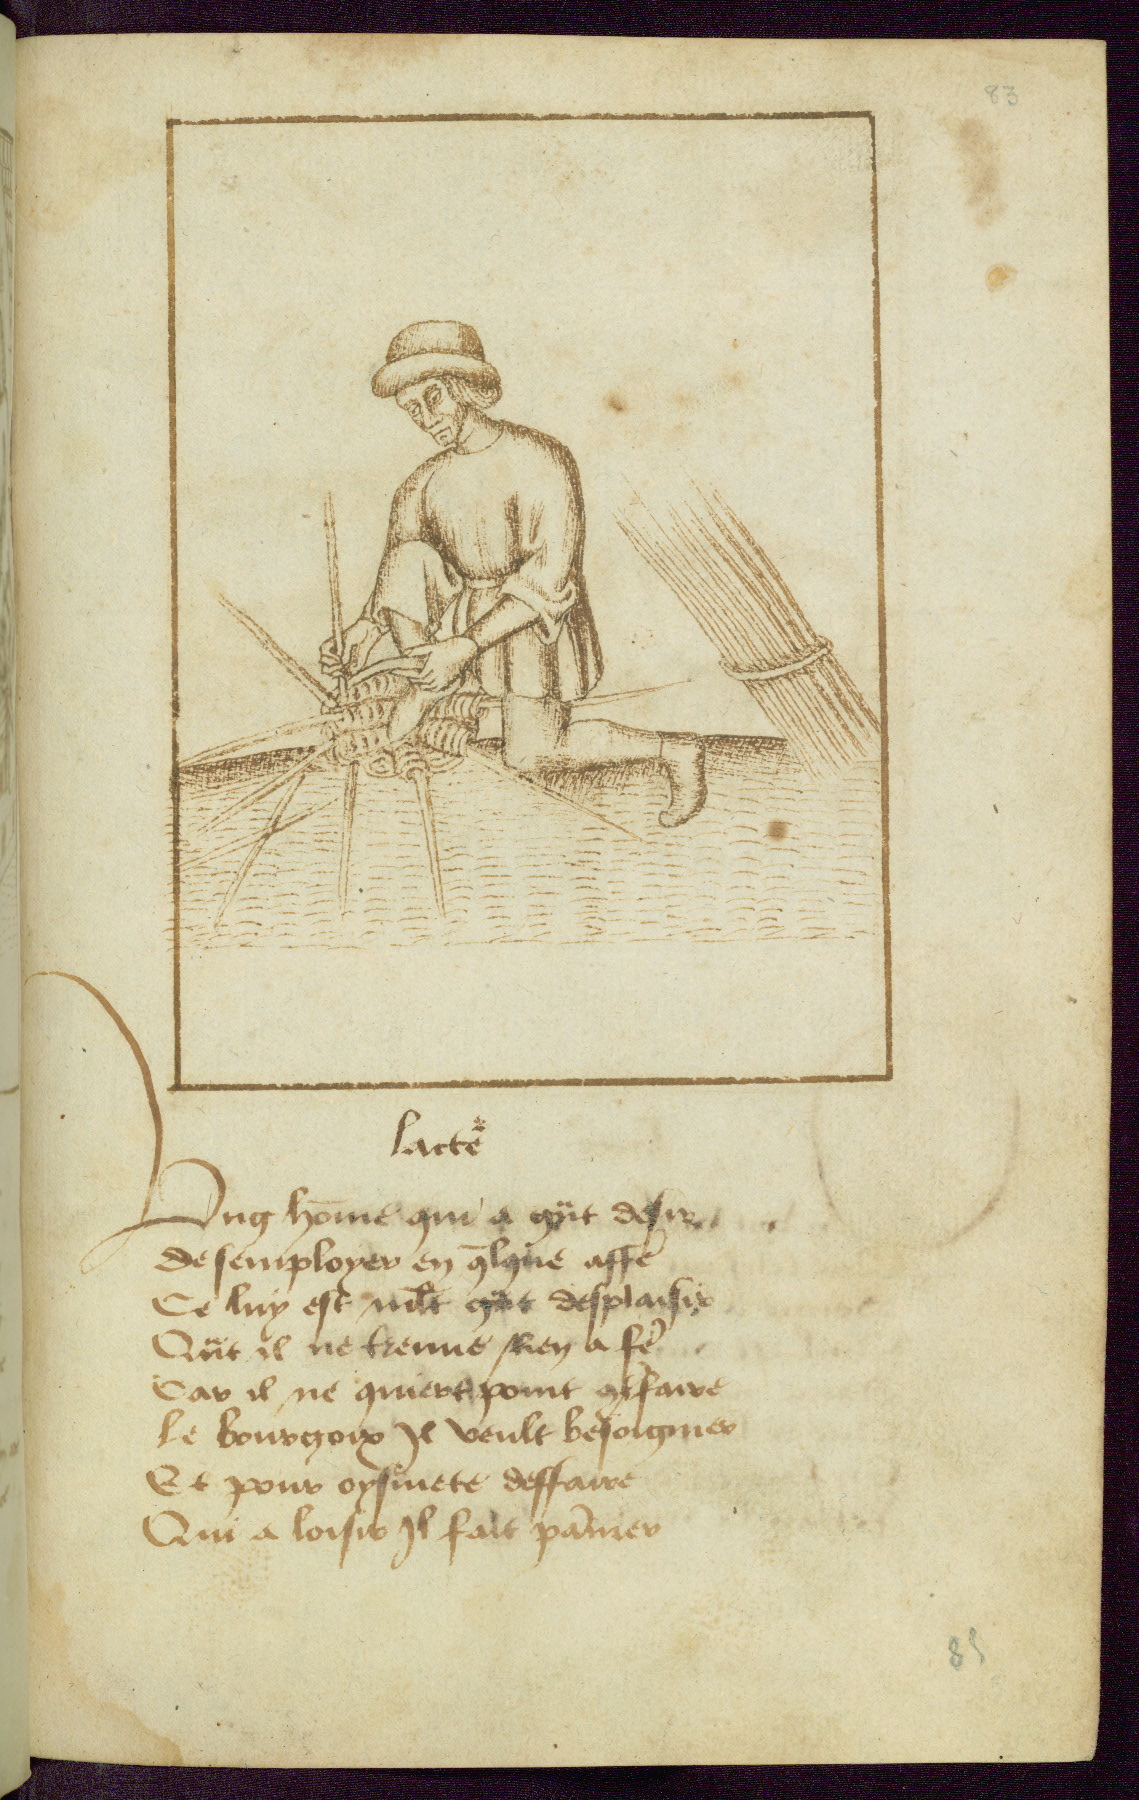 83
lacteͬ
Ung hōme qui a gͣnt desir
de semployer en q̄lque affeͬ
Ce luy est mlt gͣnt desplaisir
Qͣnt il ne treuue rien a feͬ
Car il ne quiert point
le bourgois Il veult besoigner
Et pour oysiuete deffaire
Qui a loisir Il fait pānier
85